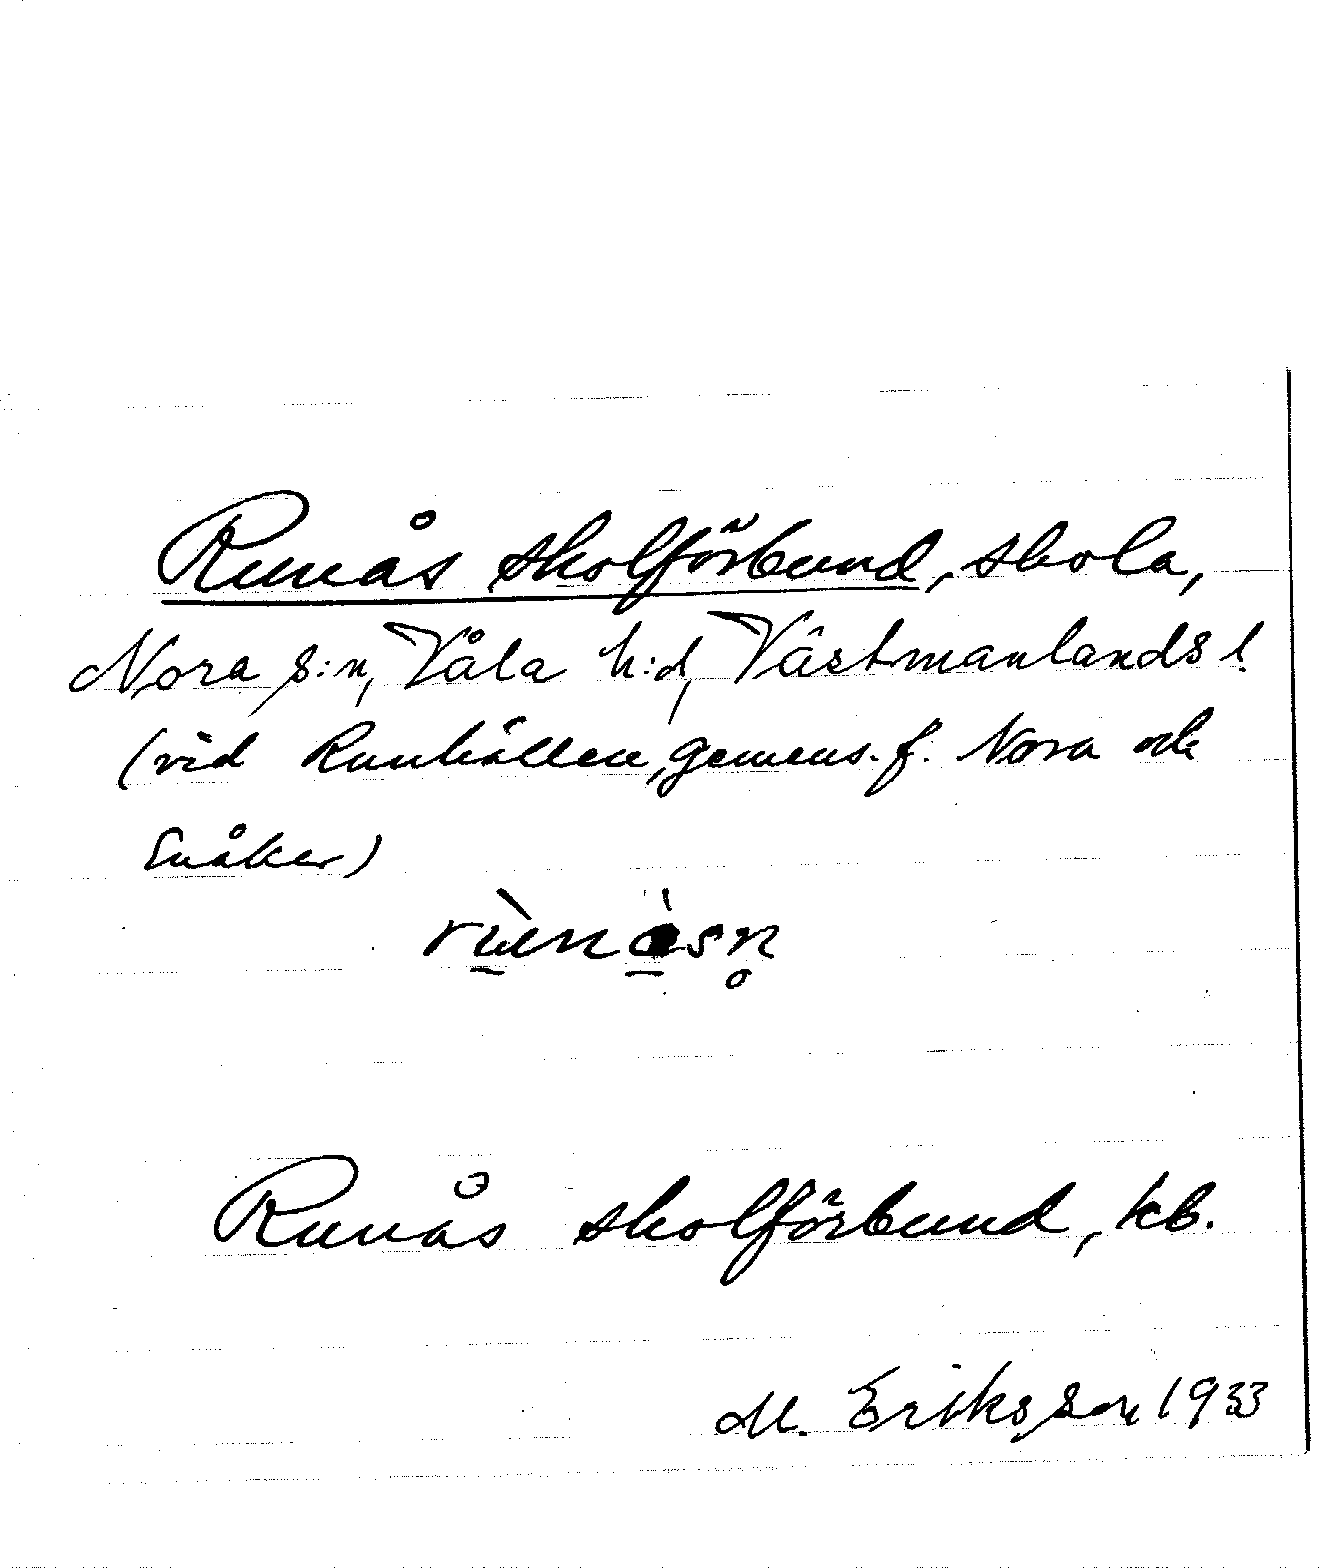 Runås skolförbund, skola,
Nora s:n, Våla h:d, Västmanlands l.
(vid Runhällen, gemens. f. Nora och
Enåker)
rùnàsn̥
Runås skolförbund, kb.
M. Eriksson 1933